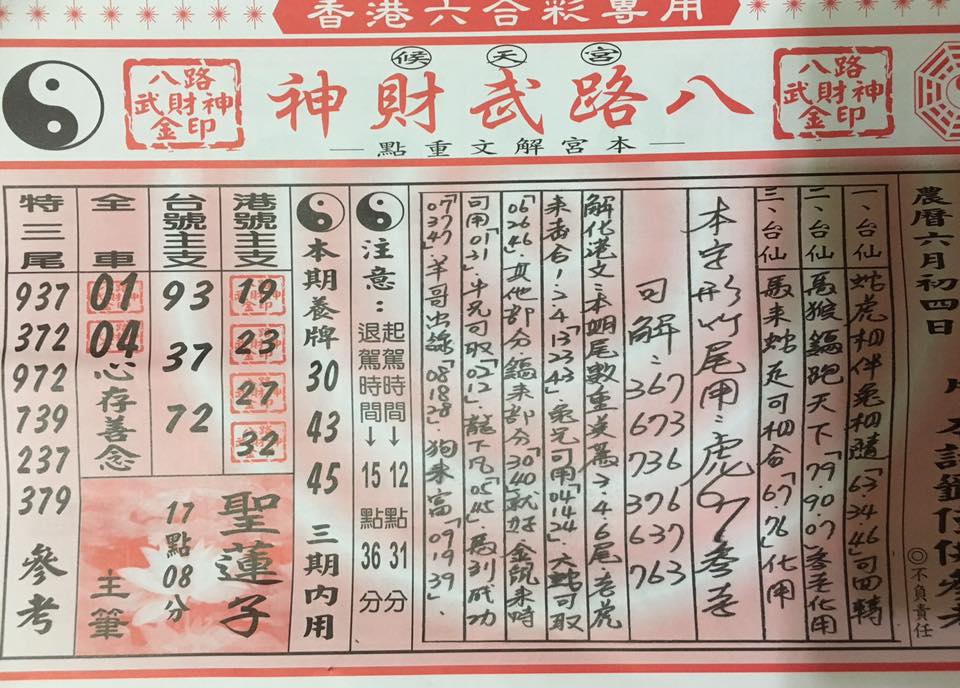 香港六合彩專用
宮天候
八路武財神
八路
武財神
金印
八路
武財神
金印
本宮解文重點
農曆六月初四日
◎不負責任
一、台仙 蛇虎相伴兔相隨「63.34.46」可四轉
二、台仙 馬猴鷄跑天下「79.90.07」參老化用
三、台仙 馬來蛇走可相合「67.76」化用
本字形竹尾用:虎67參老
可解: 367 673 736 376 637 763
解化港文:本期尾數重美為3.4.6尾老虎
來去合!3.4「13.23.43」兔兄可用「04.14.24」六蛇可取
「06.26.46」其他部分鷄來部分「30.40就好」金說來時
可用「01.21」牛兄可取「02.12」龍下凡「05.45」馬到成功
「07.37.47」羊哥出線「08.18.28」狗來富「09.19.39」
注意:
起駕時間↓12點31分
退駕時間↓15點36分
本期養牌 30 43 45 三期內用
港號主支
19
23
27
32
台號主支
93
37
72
全車
01
04
心存善念
特三尾
937
372
972
739
237
379
參考
聖蓮子
17點08分
主筆